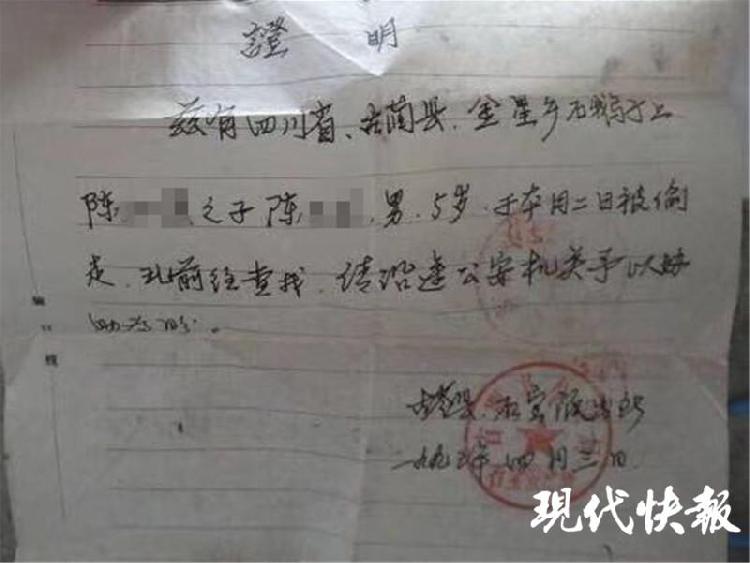 證 明
兹有四川省、古蔺县、金星乡石
陈 之子陈 、男、5岁、于本月二日被偷
走、现前往查找、请沿途公安机关予以
助为盼。
古蔺县、石宝派出所
一九九 年四月三日
装 订 线
现代快報